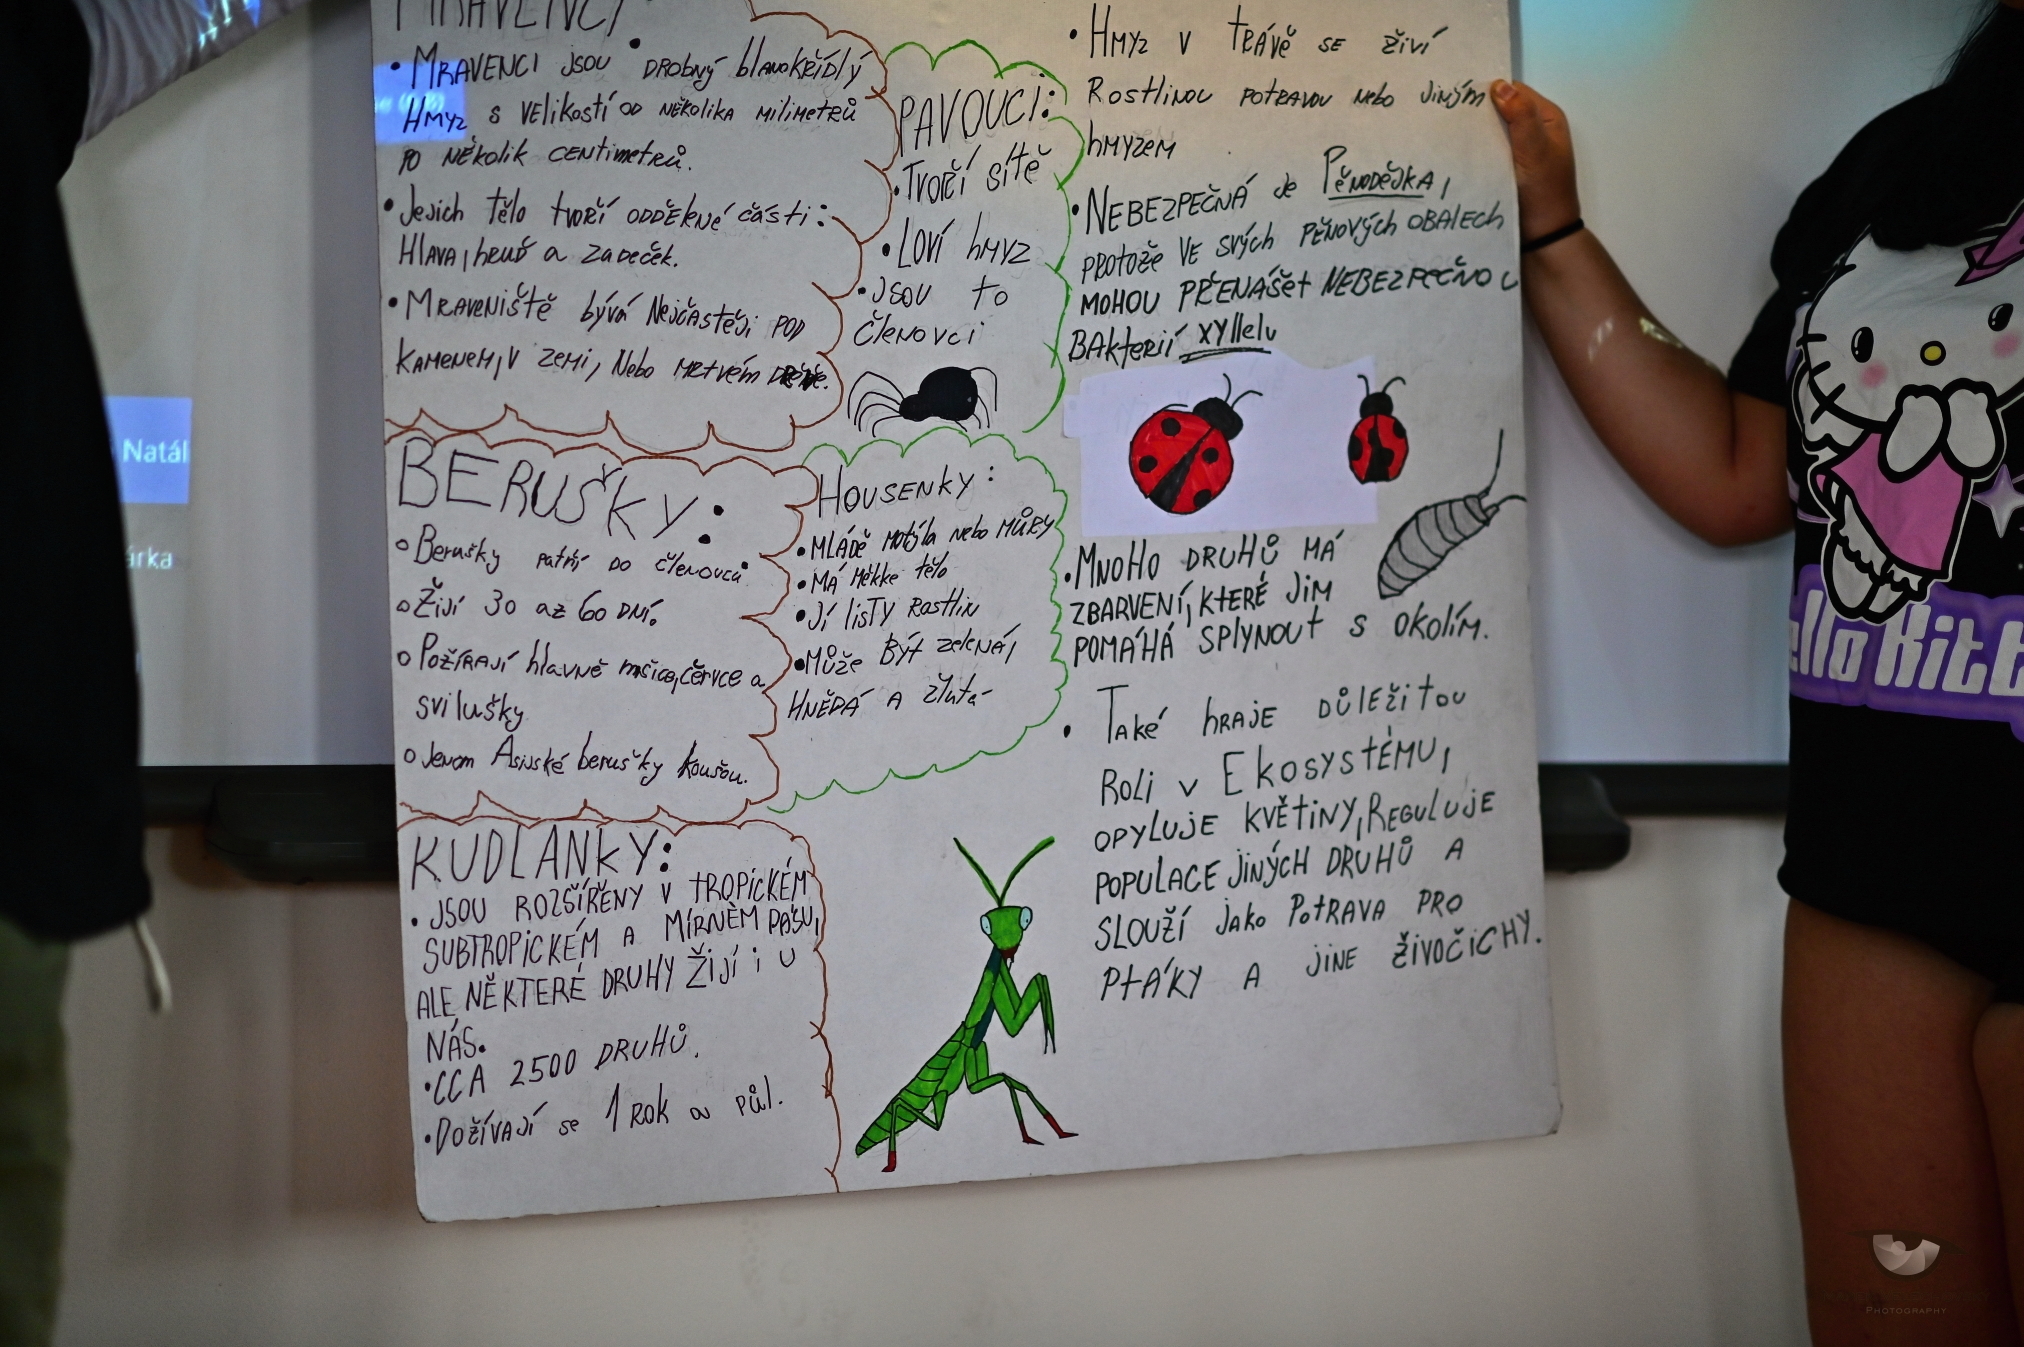 MRAVENCI:
• MRAVENCI JSOU DROBNÝ blANOKŘÍDLÝ
HMYZ S VELIKOSTÍ OD NĚKOLIKA MILIMETRŮ
PO NĚKOLIK CENTIMETRŮ.
• Jejich tělo tvoří ODDĚLENÉ části:
HLAVA, hRUĎ a ZADEČEK.
• MRAVENIŠTĚ bývá Nejčastěji POD
KAMENEM, V ZEMI, Nebo MRTVÉM
BERUŠKY:
Berušky patří DO členovců
Žijí 30 až 60 DNÍ.
Požírají hlavně mšice, červce a
svilušky
Jenom Asijské berušky koušou.
KUDLANKY:
• JSOU ROZŠÍŘENY V TROPICKÉM
SUBTROPICKÉM A MÍRNÉM PÁSU,
ALE NĚKTERÉ DRUHY ŽIJÍ i U
NÁS.
• CCA 2500 DRUHŮ.
• DOŽÍVAJÍ se 1 ROK a půl.
PAVOUCI:
• TVOŘÍ SÍTĚ
• LOVÍ hMYZ
• JSOU TO
ČLENOVCI
HOUSENKY:
• MLÁDĚ MOTÝLA Nebo MŮRY
• MÁ MĚKKÉ tělo
• JÍ LISTY ROSTLIN
• Může BÝT zelená,
HNĚDÁ A žlutá
• HMYZ V TRÁVĚ SE ŽIVÍ
ROSTLINOU POTRAVOU Nebo JINÝM
hMYZEM
• NEBEZPEČNÁ Je PĚNODĚJKA,
PROTOŽE VE SVÝCH PĚNOVÝCH OBALECH
MOHOU PŘENÁŠET NEBEZPEČNOU
BAKTERIÍ xyllelu
• MNOHO DRUHŮ MÁ
ZBARVENÍ, KTERÉ JIM
POMÁHÁ SPLYNOUT S OKOLÍM.
• Také hRAJE DŮLEŽITOU
ROLI V EKOSYSTÉMU,
OPYLUJE KVĚTINY, REGULUJE
POPULACE JINÝCH DRUHŮ A
SLOUŽÍ JAKO POTRAVA PRO
PTÁKY A JINE ŽIVOČICHY.
Natál
árka
ello Kitt
PHOTOGRAPHY